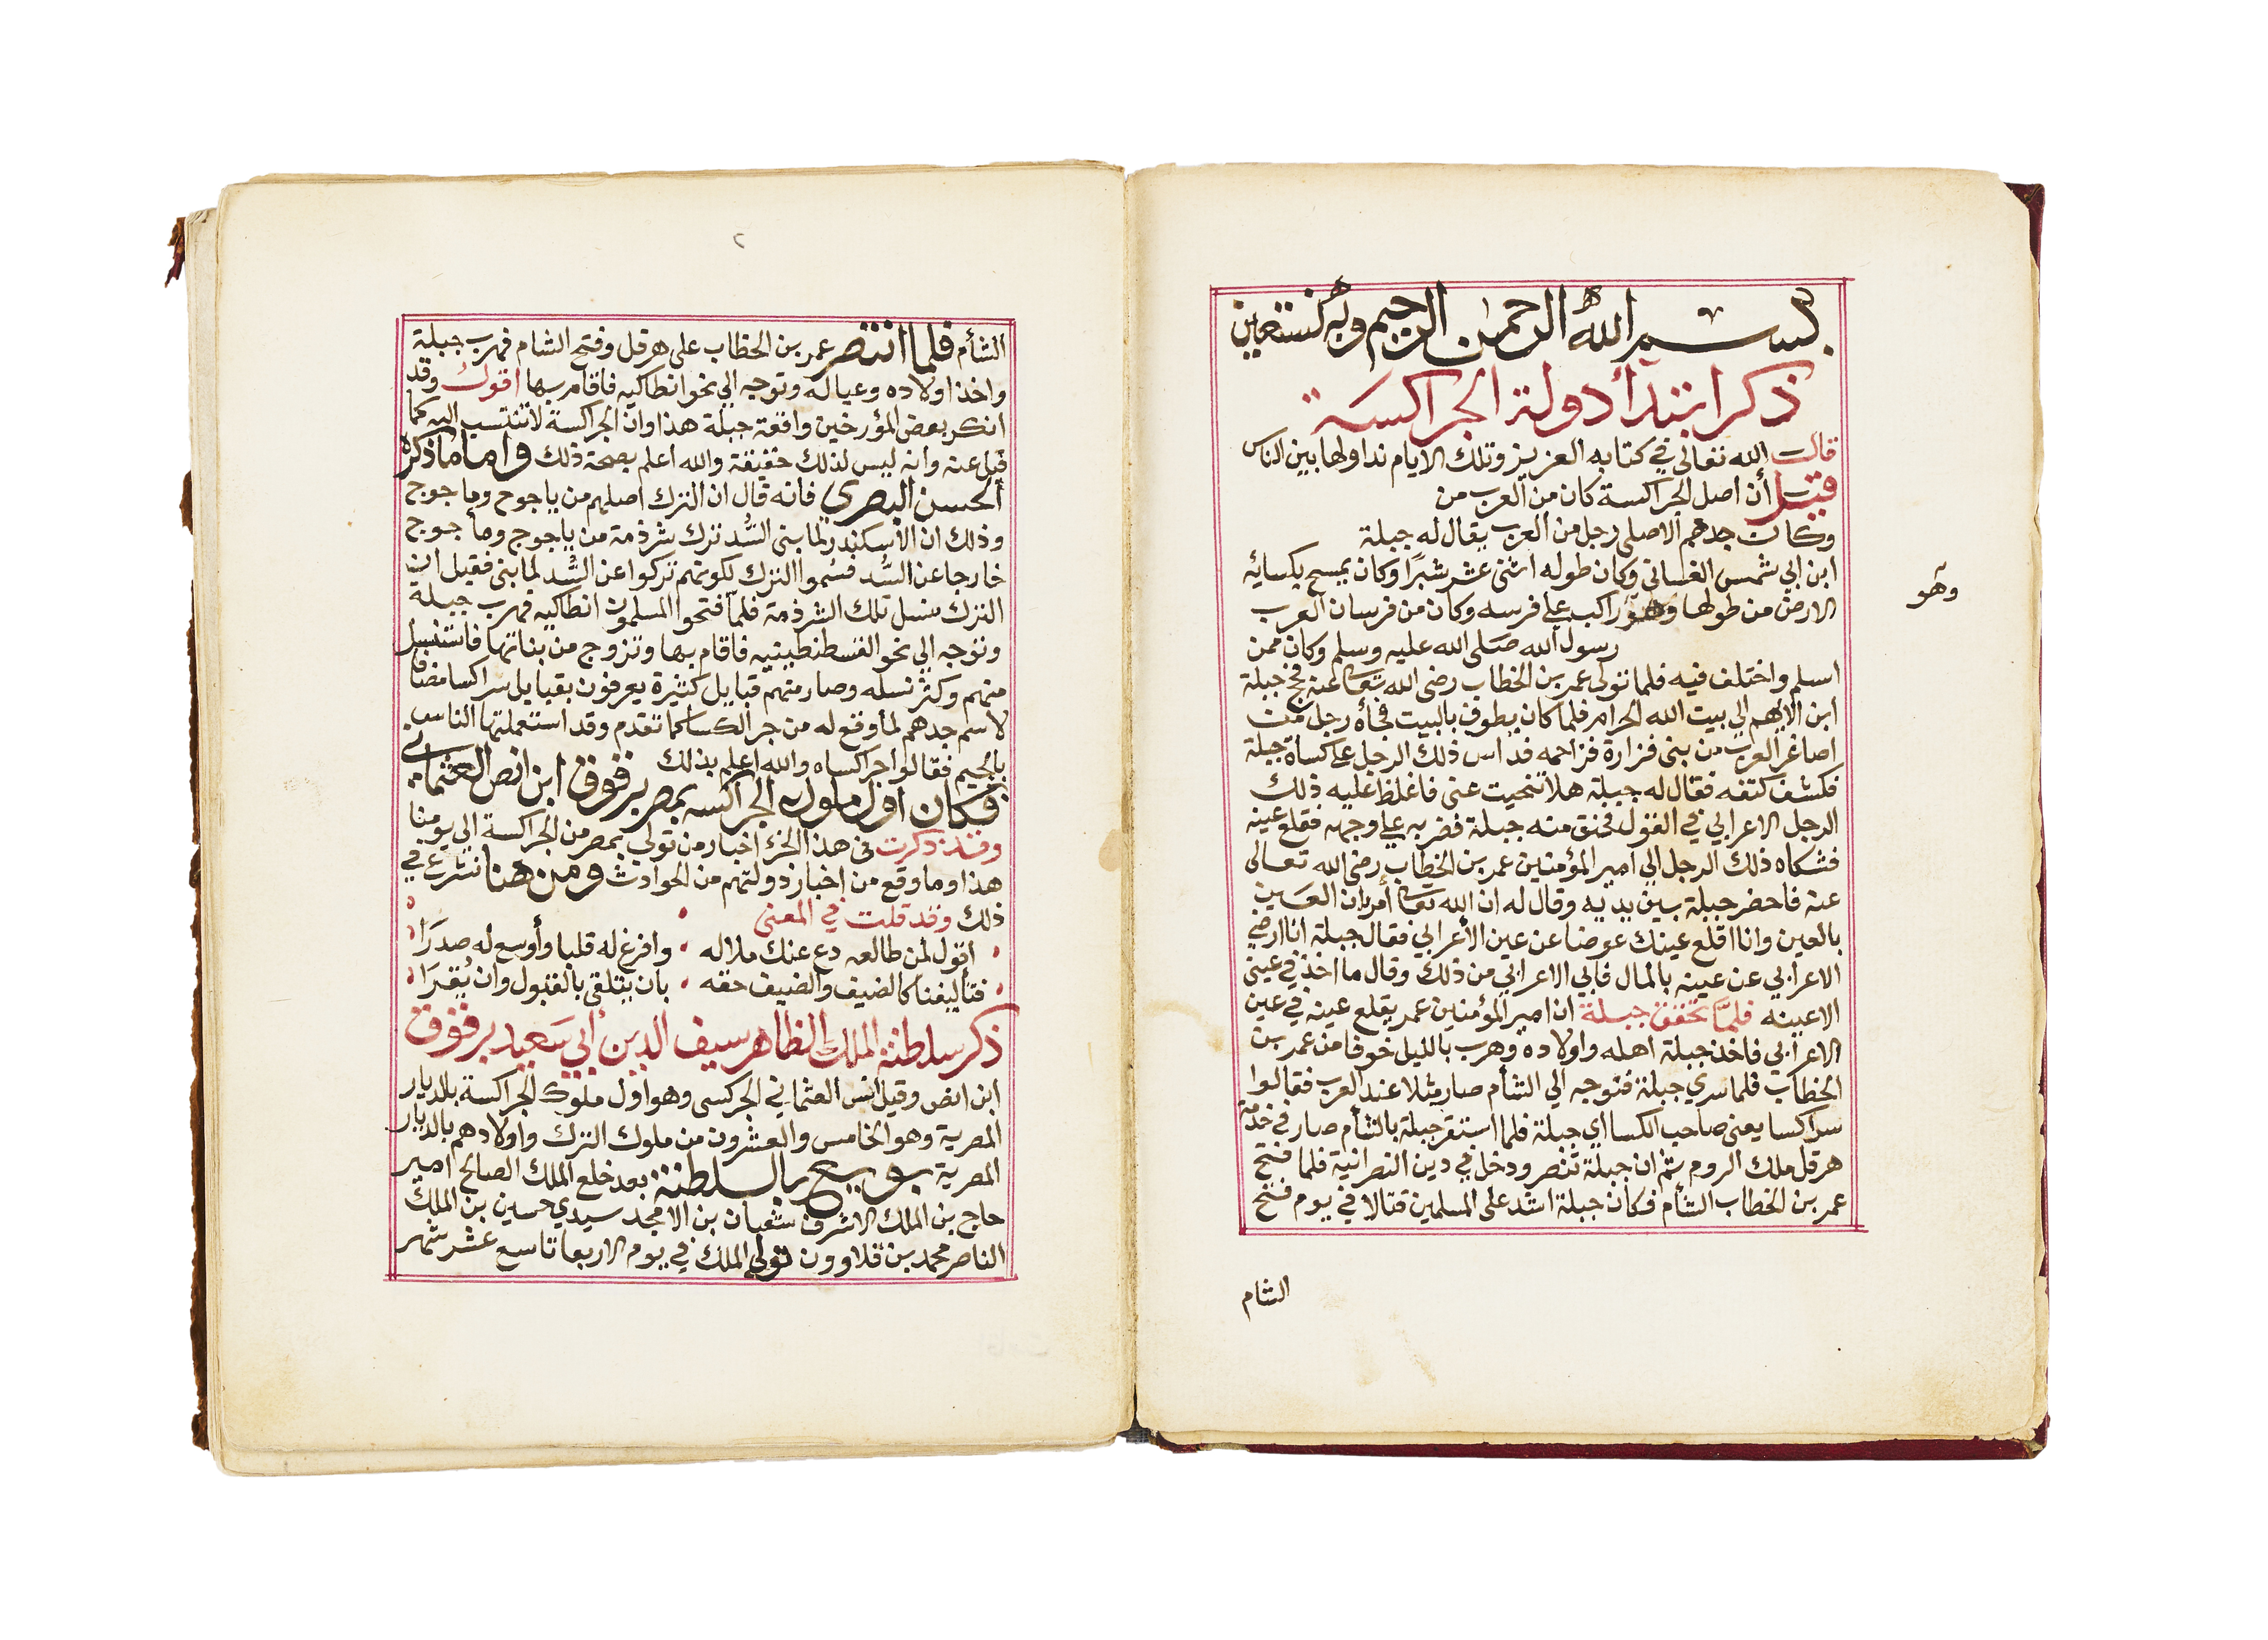 بسم الله الرحمن الرحيم وبه نستعين
ذكر ابتدأ دولة الجراكسة
قالت الله تعالى في كتابه العزيز وتلك الايام نداولها بين الناس
قيل أن اصل الجراكسة كان من العرب من
وكانت جدهم الاصلى رجل من العرب يقال له جبلة
ابن ابي شمس الغسانى وكان طوله اثنى عشر شبرًا وكان يمسح بكسائه
الارض من طولها وهو راكب على فرسه وكان من فرسان العرب
وهو
رسول الله صلى الله عليه وسلم وكان ممن
اسلم واختلف فيه فلما تولى عمر بن الخطاب رضى الله تعالى عنه فحج جبلة
ابن الايهم الي بيت الله الحرام فلما كان يطوف بالبيت فجأه رجل من
اصاغر العرب من بنى فزارة فزاحمه فداس ذلك الرجل على كساة جبلة
فكشف كتفه فقال له جبلة هلا تنحيت عنى فاغلظ عليه ذلك
الرجل الاعرابي في القول فحنق منه جبلة فضربه على وجهه فقلع عينه
فشكاه ذلك الرجل الي امير المؤمنين عمر بن الخطاب رضى الله تعالى
عنه فاحضر جبلة بين يديه وقال له ان الله تعالى أمر بان العين
بالعين وانا اقلع عينك عوضا عن عين الأعرابي فقال جبلة انا ارضي
الاعرابي عن عينه بالمال فابي الاعرابي من ذلك وقال ما اخذ في عينى
الا عينه فلمَّا تحقق جبلة ان امير المؤمنين عمر يقلع عينه في عين
الاعرابي فاخذ جبلة اهله واولاده وهرب بالليل خوفا من عمر بن
الخطاب فلما سري جبلة فتوجه الي الشأم صار مثلا عند العرب فقالوا
سراكسا يعنى صاحب الكسا اي جبلة فلما استقر جبلة بالشأم صار في خدمة
هرقل ملك الروم ثم ان جبلة تنصر ودخل في دين النصرانية فلما فتح
عمر بن الخطاب الشأم فكان جبلة اشد على المسلمين قتالا في يوم فتح
الشام
٢
الشأم فلما انتصر عمر بن الخطاب على هرقل وفتح الشام فهرب جبلة
واخذ اولاده وعياله وتوجه الي نحو انطاكيه فاقام بها اقول وقد
انكر بعض المؤرخين واقعة جبلة هذا وان الجراكسة لا تنتسب اليه كما
قيل عنه وانه ليس لذلك حقيقة والله اعلم بصحة ذلك واما ما ذكره
الحسن البصرى فانه قال ان الترك اصلهم من ياجوج وماجوج
وذلك ان الاسكندر لما بنى السُّد ترك شرذمة من ياجوج وماجوج
خارجا عن السُّد فسُموا الترك لكونهم تركوا عن السُّد لما بنى فقيل ان
الترك من نسل تلك الشرذمة فلما فتحوا المسلمون انطاكيه فهرب جبلة
وتوجه الي نحو القسطنطينيه فاقام بها وتزوج من بناتها فاستنسل
منهم وكثر نسله وصار منهم قبايل كثيرة يعرفون بقبايل سراكسا مضافا
لاسم جدهم لما وقع له من جر الكسا كما تقدم وقد استعملتها الناس
بالجيم فقالوا جراكساه والله اعلم بذلك
فكان اول ملوك الجراكسه بمصر برقوق ابن انص العثمانى
وقد ذكرت فى هذا الجزء اخبار من تولى بمصر من الجراكسة الي يومنا
هذا وما وقع من اخبار دولتهم من الحوادث ومن هنا نشرع في
ذلك وقد قلت في المعنى
اقول لمن طالعه دع عنك ملاله وافرغ له قلبا وأوسع له صدرَا
فتأليفنا كالضيف والضيف حقه بان يتلقى بالقبول وان يُقرَا
ذكر سلطنة الملك الظاهر سيف الدين أبي سَعيد برقوق
ابن انص وقيل انس العثماني الجركسى وهو اول ملوك الجراكسة بالديار
المصرية وهو الخامس والعشرون من ملوك الترك واولادهم بالديار
المصرية بويع بالسلطنة بعد خلع الملك الصالح امير
حاج بن الملك الاشرف شعبان بن الامجد سيدي حسين بن الملك
الناصر محمد بن قلاوون تولي الملك في يوم الاربعا تاسع عشر شهر